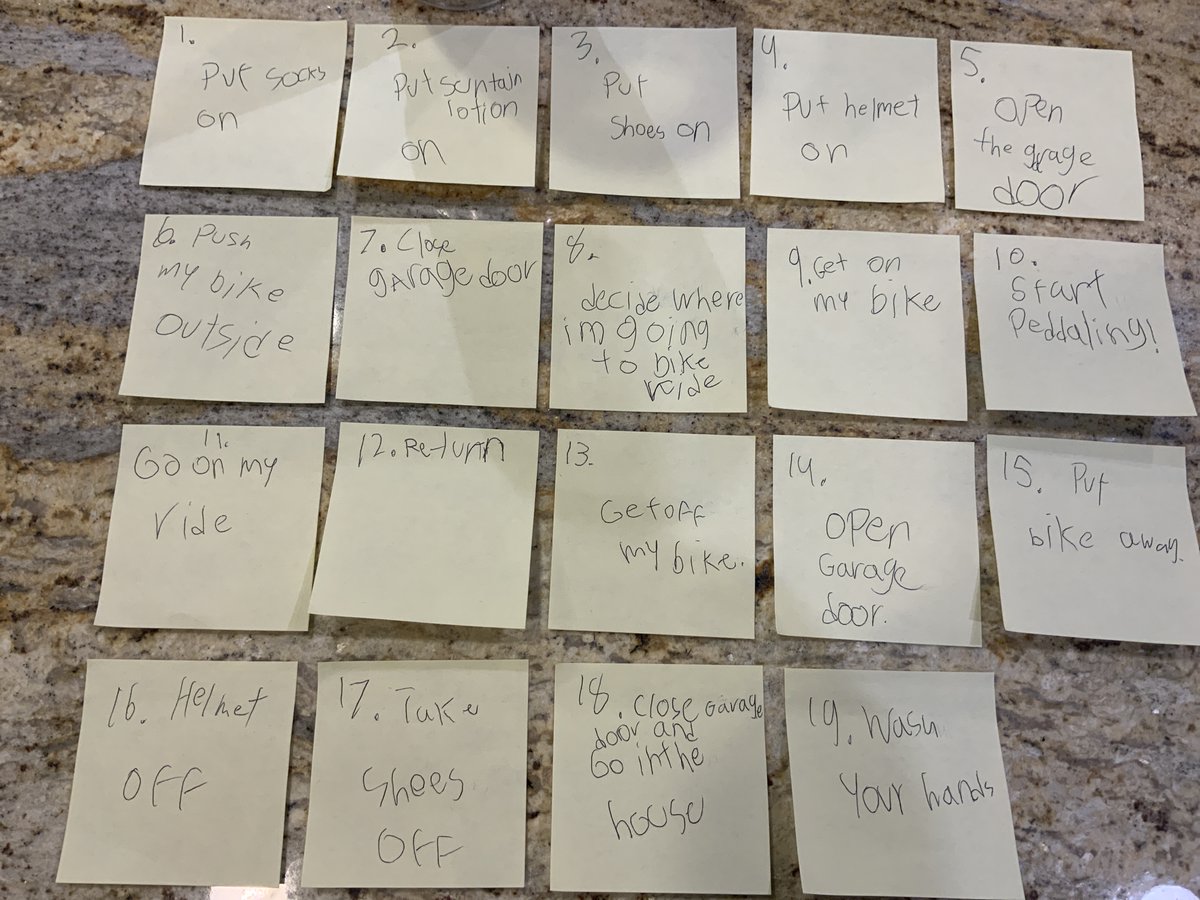 1.
Put socks
on
2.
Put suntain
lotion
on
3.
Put
Shoes on
4.
Put helmet
on
5.
Open
the grage
door
6. Push
my bike
outside
7. Close
garage door
8.
decide where
im going
to bike
ride
9. Get on
my bike
10.
Start
Peddaling!
11.
Go on my
ride
12. Return
13.
Get off
my bike.
14.
Open
Garage
door.
15. Put
bike away.
16. Helmet
off
17. Take
Shoes
Off
18. Close Garage
door and
Go in the
house
19. Wash
Your hands